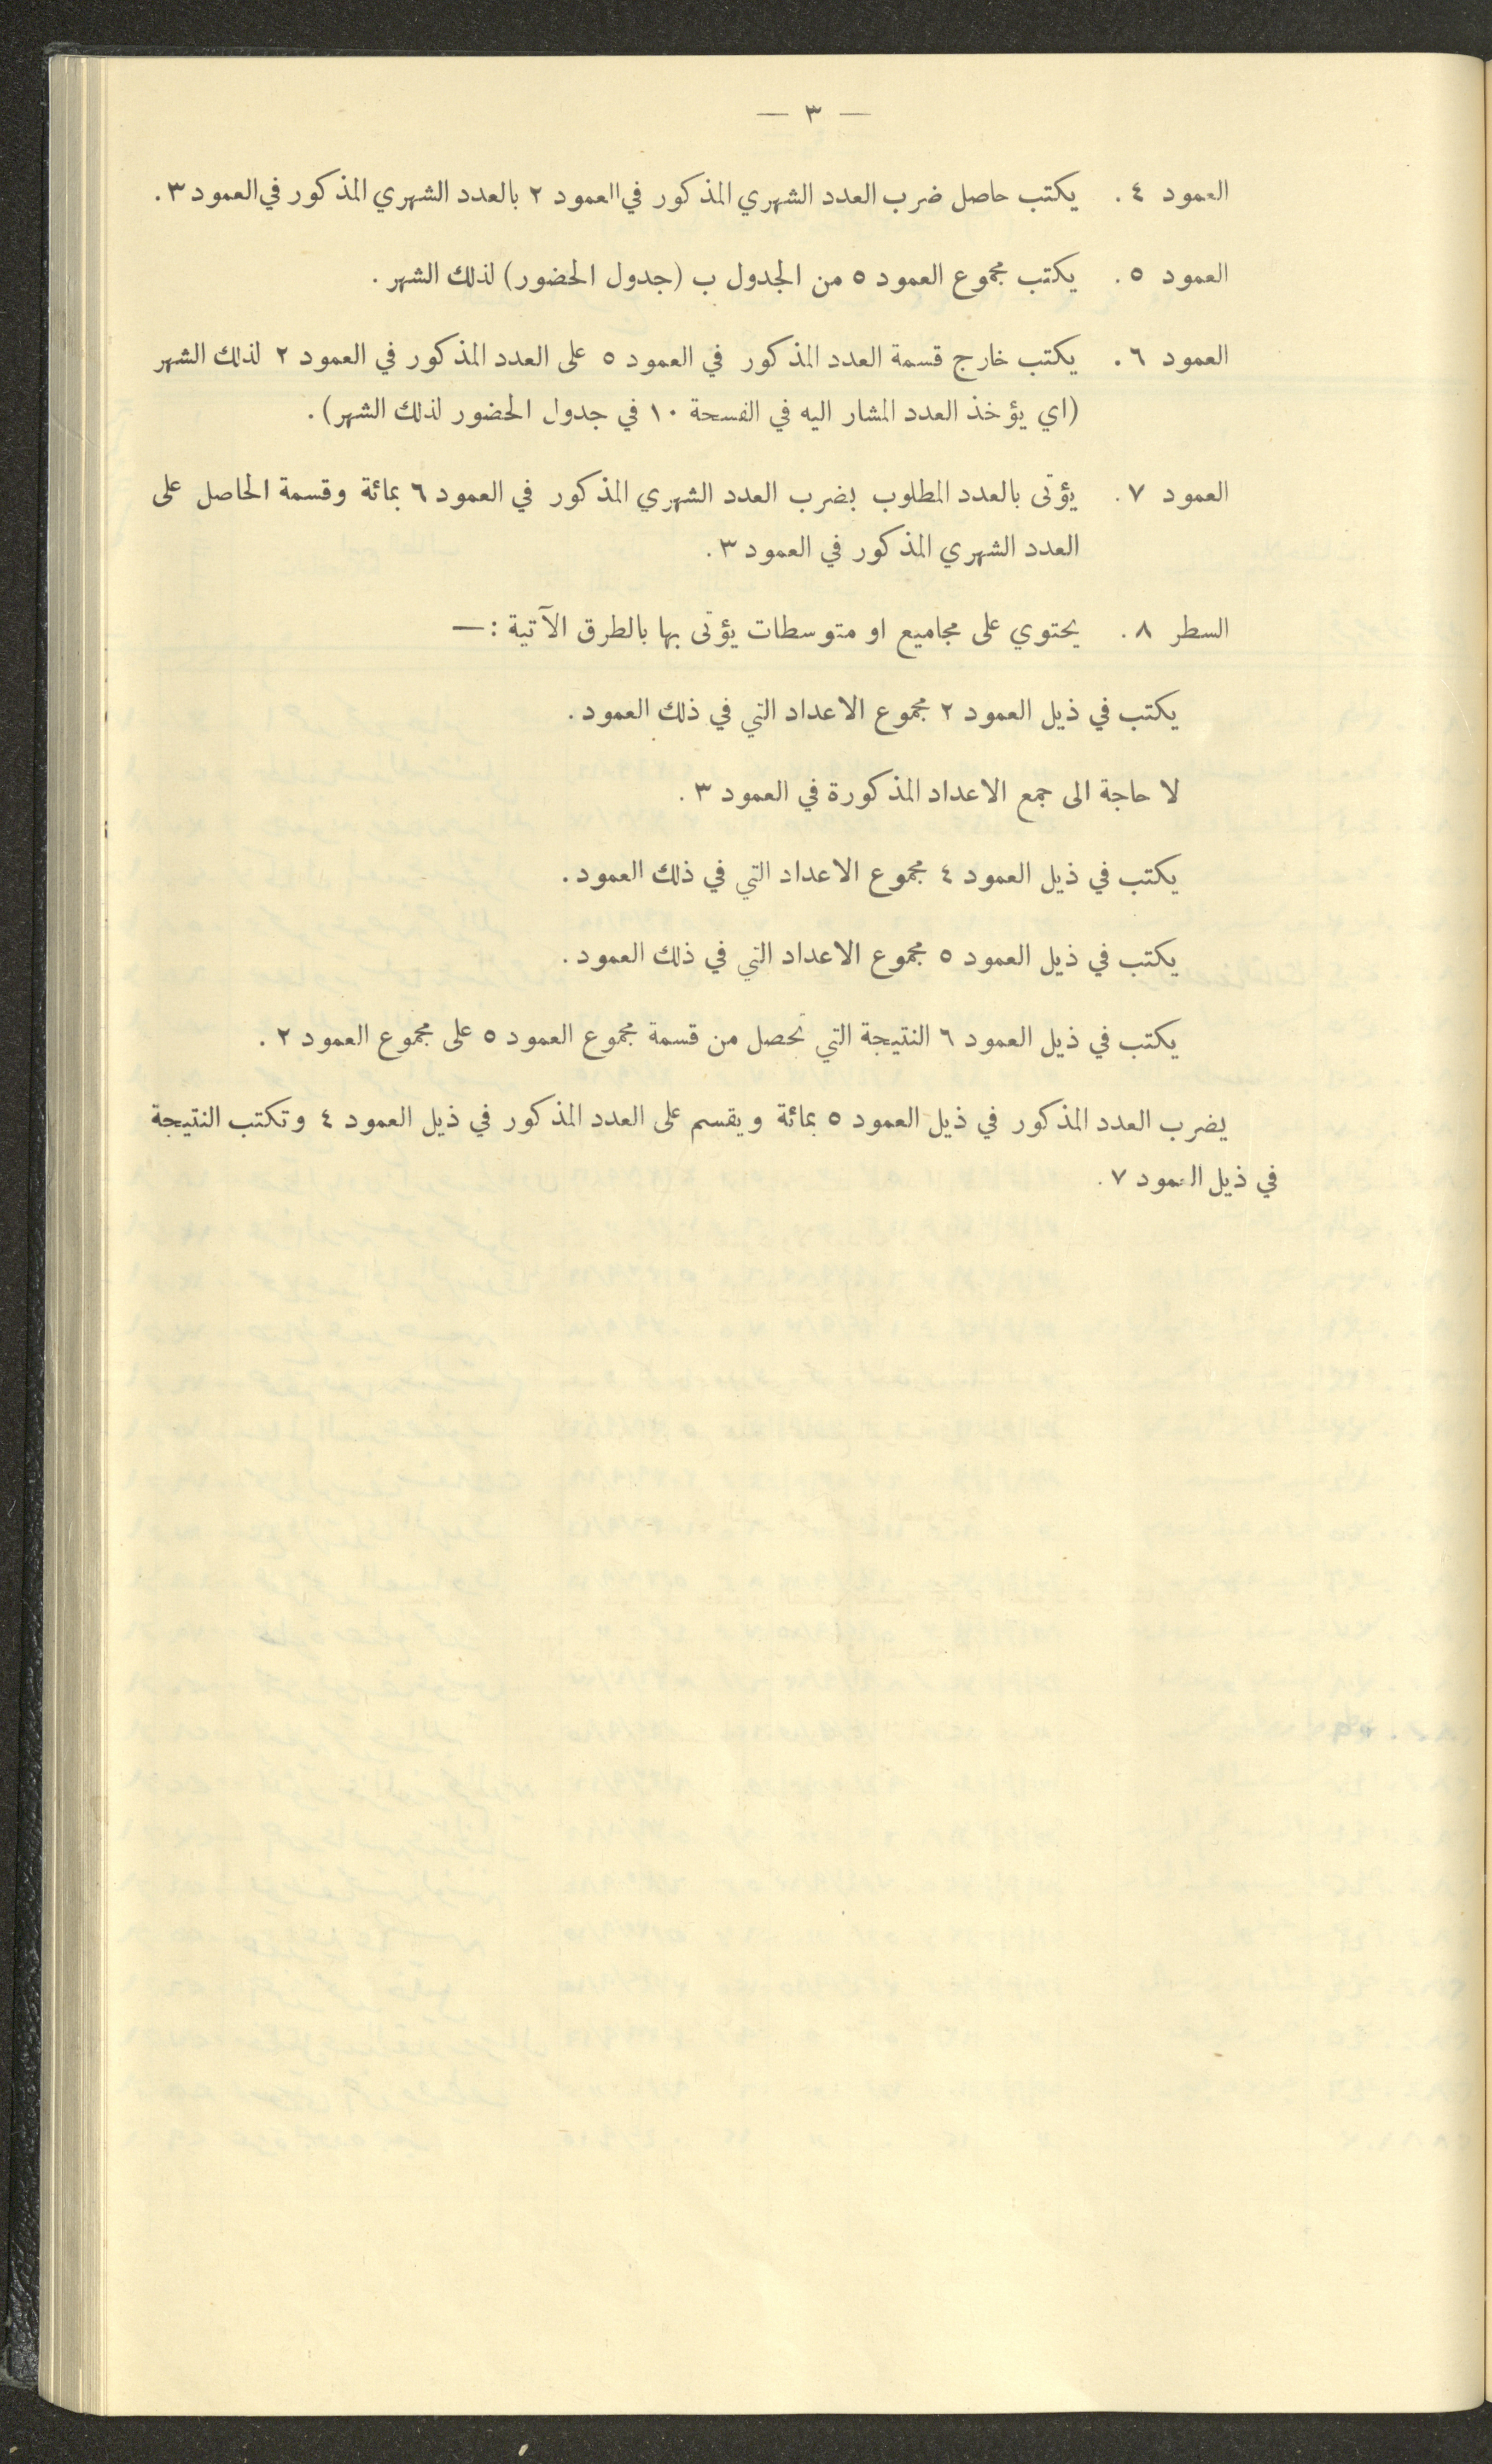 — ٣ —
العمود ٤. يكتب حاصل ضرب العدد الشهري المذكور في العمود ٢ بالعدد الشهري المذكور في العمود ٣.
العمود ٥. يكتب مجموع العمود ٥ من الجدول ب (جدول الحضور) لذلك الشهر.
العمود ٦. يكتب خارج قسمة العدد المذكور في العمود ٥ على العدد المذكور في العمود ٢ لذلك الشهر
(اي يؤخذ العدد المشار اليه في الفسحة ١٠ في جدول الحضور لذلك الشهر).
العمود ٧. يؤتى بالعدد المطلوب بضرب العدد الشهري المذكور في العمود ٦ بمائة وقسمة الحاصل على
العدد الشهري المذكور في العمود ٣.
السطر ٨. يحتوي على مجاميع او متوسطات يؤتى بها بالطرق الآتية :—
يكتب في ذيل العمود ٢ مجموع الاعداد التي في ذلك العمود.
لا حاجة الى جمع الاعداد المذكورة في العمود ٣.
يكتب في ذيل العمود ٤ مجموع الاعداد التي في ذلك العمود.
يكتب في ذيل العمود ٥ مجموع الاعداد التي في ذلك العمود.
يكتب في ذيل العمود ٦ النتيجة التي تحصل من قسمة مجموع العمود ٥ على مجموع العمود ٢.
يضرب العدد المذكور في ذيل العمود ٥ بمائة ويقسم على العدد المذكور في ذيل العمود ٤ وتكتب النتيجة
في ذيل العمود ٧.